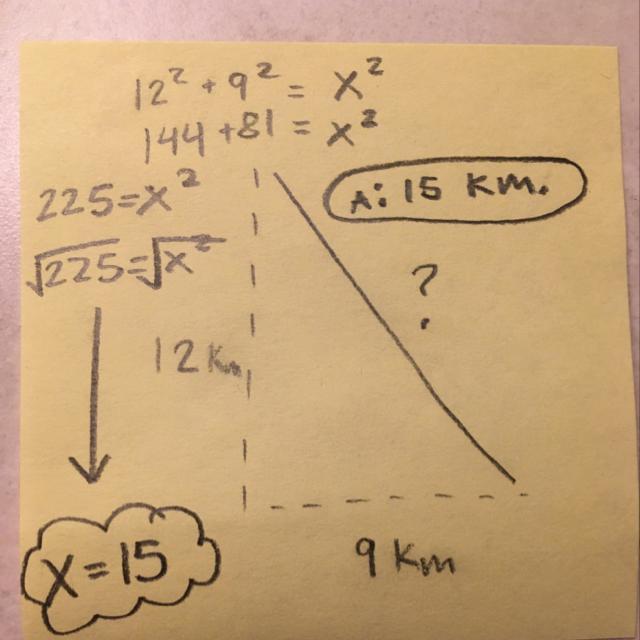 12² + 9² = x²
144 + 81 = x²
225 = x²
√225 = √x²
A: 15 Km.
?
12 Km
9 Km
x = 15